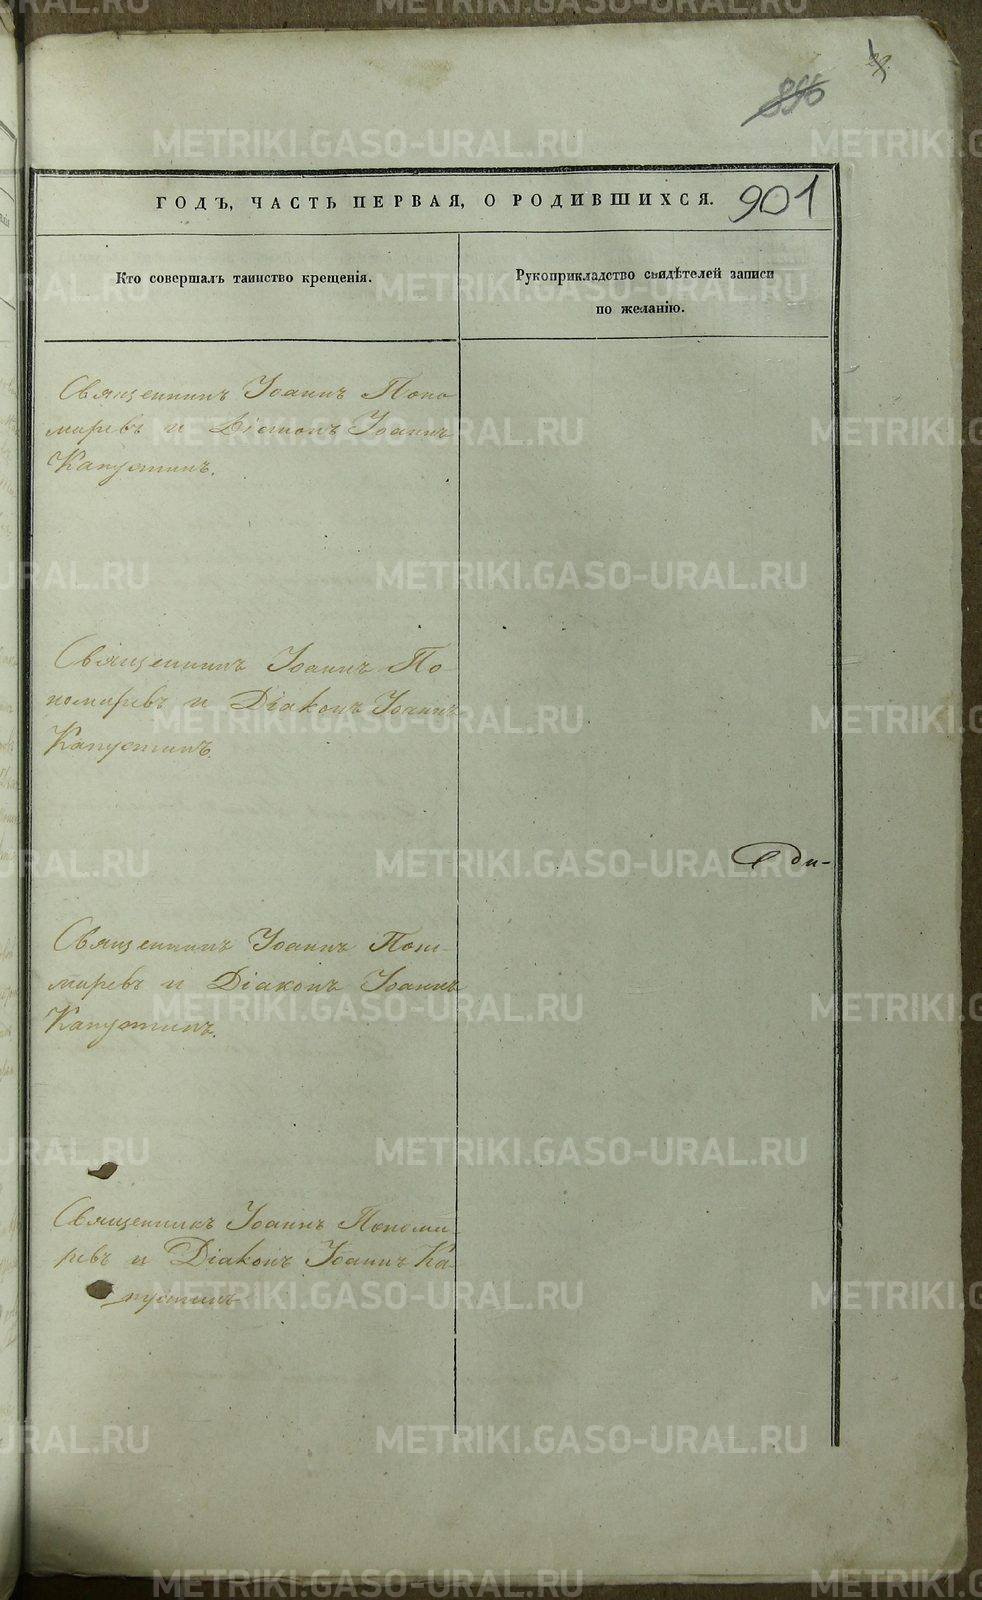 896
901
ГОДЪ, ЧАСТЬ ПЕРВАЯ, О РОДИВШИХСЯ.
Кто совершалъ таинство крещенія.
Рукоприкладство свидѣтелей записи
по желанію.
Священникъ Іоаннъ Поно
маревъ и Діаконъ Іоаннъ
Капустинъ.
Священникъ Іоаннъ По
номаревъ и Діаконъ Іоаннъ
Капустинъ.
ди-
Священникъ Іоаннъ Поно-
маревъ и Діаконъ Іоаннъ
Капустинъ.
Священникъ Іоаннъ Понома
ревъ и Діаконъ Іоаннъ Ка-
пустинъ
METRIKI.GASO-URAL.RU